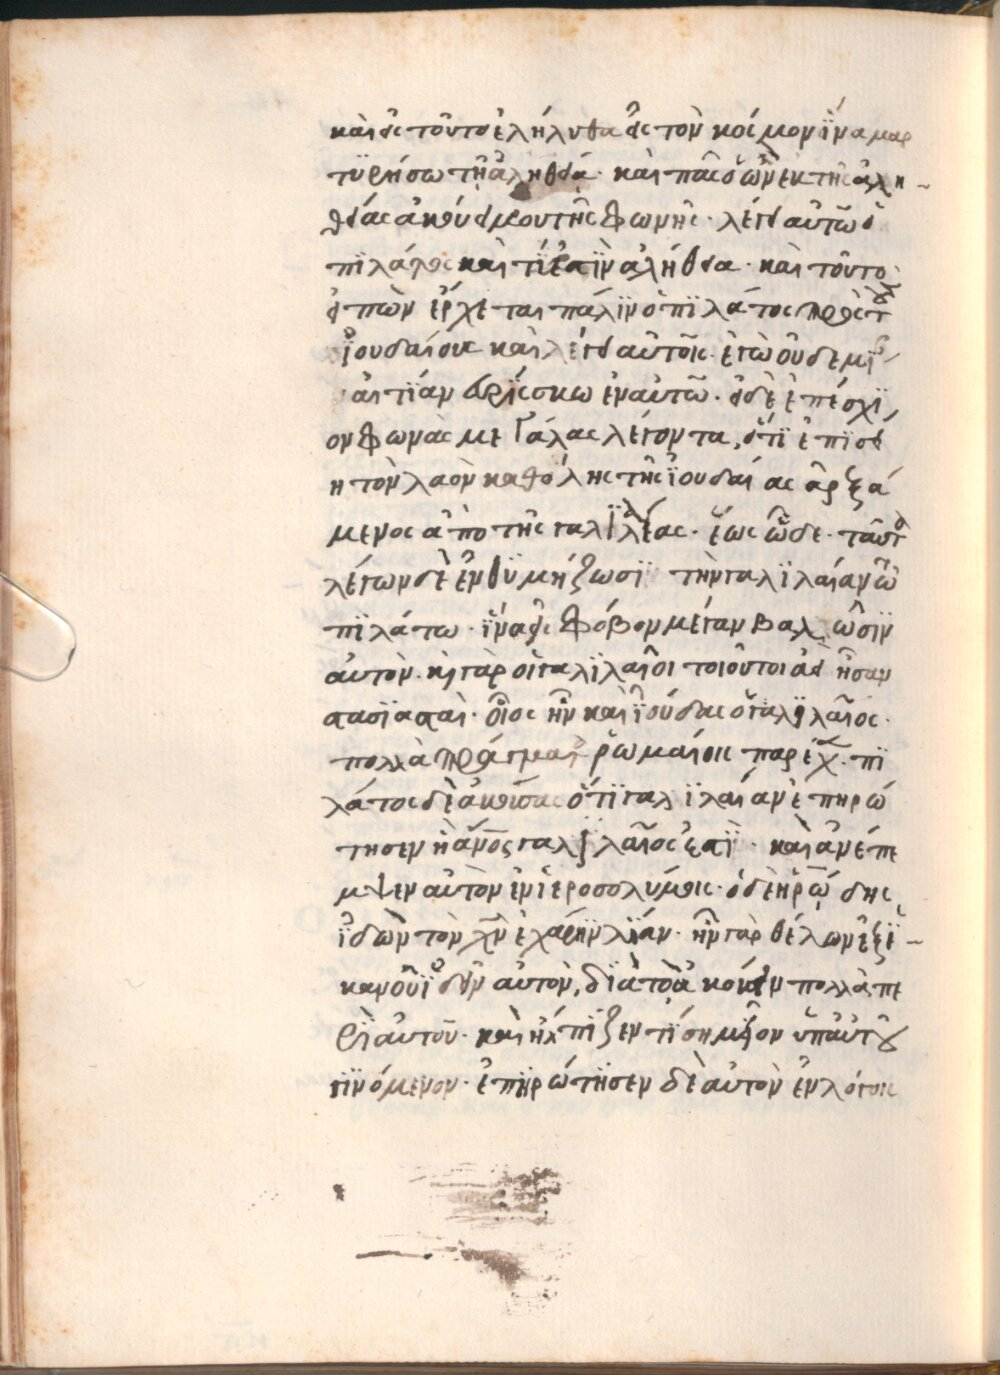 καὶ εἰς τοῦτο ἐλήλυθα εἰς τὸν κόσμον ἵνα μαρ
τυρήσω τῇ ἀληθεία· καὶ πᾶς ὁ ὢν ἐκ τῆς ἀλη
θείας ἀκούει μου τῆς φωνῆς· λέγει αὐτῶ ὁ
πιλάτος καὶ τί ἐστὶν ἀλήθεια· καὶ τοῦτο
εἰπὼν ἔρχεται πάλιν ὁ πιλάτος πρὸς τ
ἰουδαίους καὶ λέγει αὐτοῖς· ἐγὼ οὐδεμί
αἰτίαν εὑρίσκω ἐν αὐτῶ· οἱ δὲ ἐπέσχϊ
ον φωνὰς μεγάλας λέγοντα, ὅτϊ ἐπϊσεί
η τὸν λαὸν καθόλης τῆς ἰουδαίας ἀρξά
μενος ἀπὸ τῆς γαλϊλέας· ἕως ὧδε· ταῦτ
λέγων δὲ ἐνθϋμήζωσϊ τὴν γαλϊλαίαν τῶ
πϊλάτω· ἵνα εἰς φόβον μέγαν βαλῶσϊν
αὐτὸν· κὶ γὰρ οἱ γαλϊλαῖοι τοιοῦτοι ἀεὶ ἦσαν
στασϊασταὶ· οἷος ἦν καὶ ἰούδας ὁ γαλϊλαῖος·
πολλὰ πράγματ ῥωμαίοις παρέχ· πϊ
λάτος δὲ ἀκούσας ὅτϊ γαλϊλαίαν ἐπηρώ
τησεν ἢ ἄνος γαλϊλαῖος ἐστϊ· καὶ ἀνέπε
μψεν αὐτὸν ἐν ἱεροσολύμοις· ὁ δὲ ἡρώδης
ἰδὼν τὸν χν ἐχάρην λϊάν· ἦν γὰρ θέλων ἐξϊ
κανοῦ ἰδεῖν αὐτὸν, δϊὰ τὸ ἀκούειν πολλὰ πε
ρϊ αὐτοῦ· καὶ ἤλπϊζεν τϊ σημεῖον ὑπ αὐτοῦ
γϊνόμενον· ἐπηρώτησεν δὲ αὐτὸν ἐν λόγοις